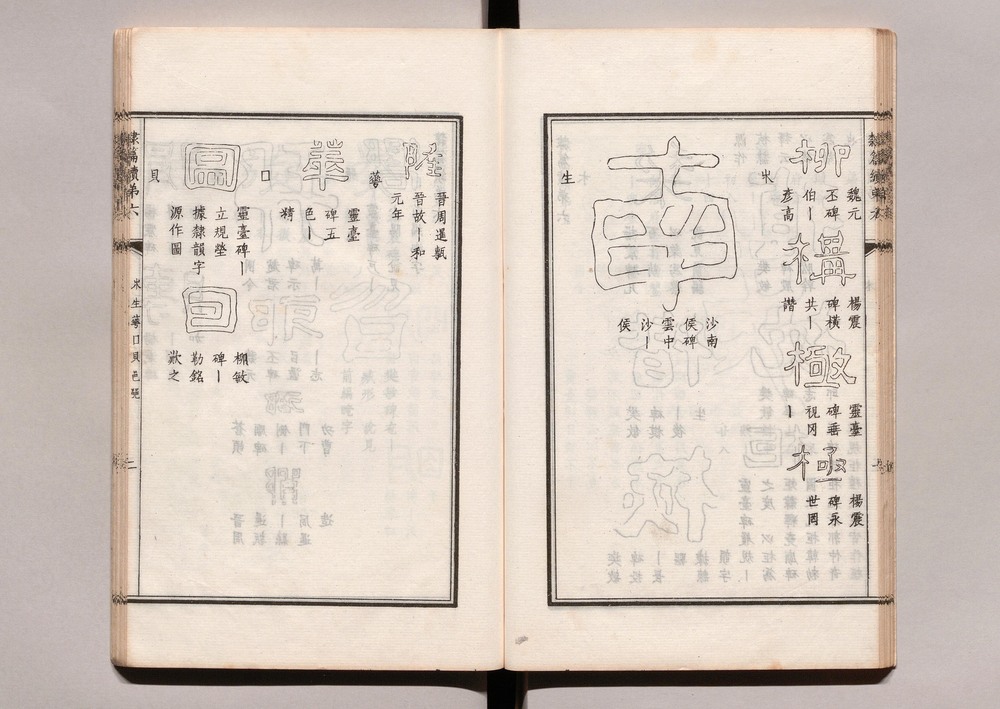 柳
魏元
丕碑
伯丨
彥高
構
楊震
碑橫
共丨
讚
極
靈臺
碑垂
視罔
丨
極
楊震
碑永
世罔
沙南
侯碑
雲中
沙丨
侯
生
隆
晉周𨖴甎
晉故丨和
元年
華
靈臺
碑五
色丨
精
口
圖
靈臺碑丨
立規塋
據隸韻字
源作圖
柳敏
碑丨
勒銘
歎之
貝
隸篇續弟六